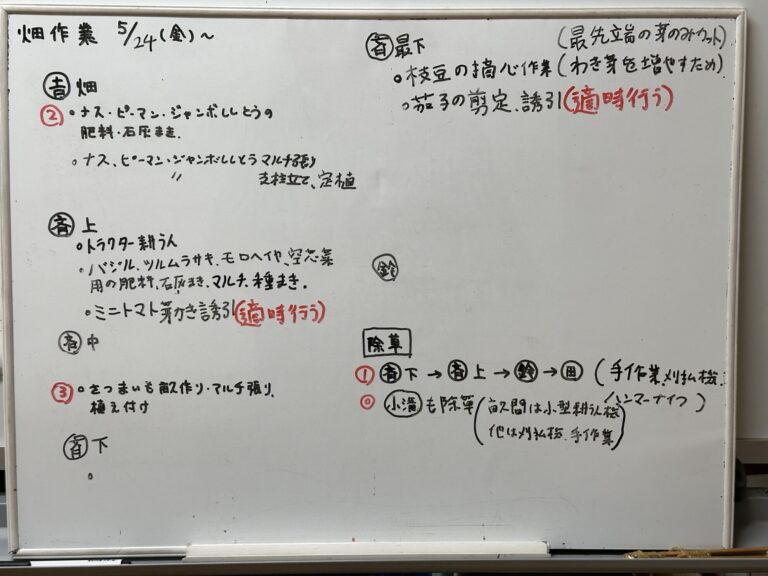 畑作業 5/24(金)~
吉 畑
② ・ナス・ピーマン・ジャンボししとうの
肥料・石灰まき.
・ナス、ピーマン・ジャンボししとう マルチ張り
〃 支柱立て、定植
斉 上
・トラクター耕うん
・バジル、ツルムラサキ、モロヘイヤ、空芯菜
用の肥料、石灰まき、マルチ、種まき.
・ミニトマト芽かき誘引(適時行う)
斉 中
③ ・さつまいも畝作り・マルチ張り、
植え付け
斉 下
・
斉 最下 (最先立端の芽のみカット)
・枝豆の摘心作業(わき芽を増やすため)
・茄子の剪定、誘引(適時行う)
鈴
除草
① 斉 下 → 斉 上 → 鈴 → 田 (手作業、刈払機、
ハンマーナイフ)
◎ 小溝 も除草 (畝間は小型耕うん機
他は刈払機、手作業)